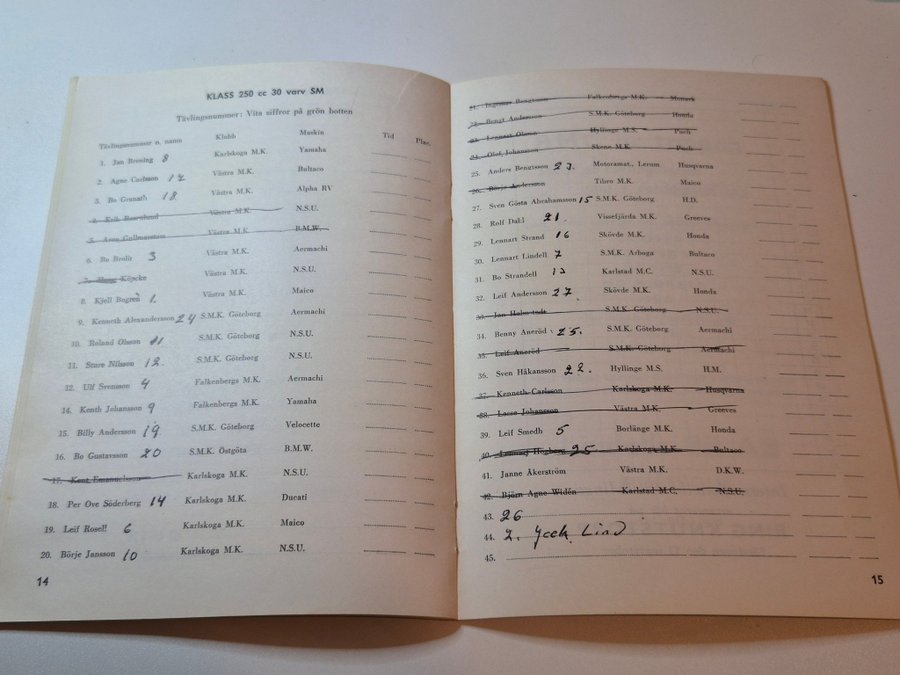 KLASS 250 cc 30 varv SM
Tävlingsnummer: Vita siffror på grön botten
Tävlingsnummer o. namn Klubb Maskin Tid Plac.
1. Jan Brening 8 Karlskoga M.K. Yamaha
2. Agne Carlsson 17 Västra M.K. Bultaco
3. Bo Granath 18 Västra M.K. Alpha RV
4. Erik Västra M.K. N.S.U.
5. Arne Gullmarstam Västra M.K. B.M.W.
6. Bo Brolir 3 Västra M.K. Aermachi
7. Köpcke Västra M.K. N.S.U.
8. Kjell Bogren 1. Västra M.K. Maico
9. Kenneth Alexandersson 24 S.M.K. Göteborg Aermachi
10. Roland Olsson 11 S.M.K. Göteborg N.S.U.
11. Sture Nilsson 12. S.M.K. Göteborg N.S.U.
12. Ulf Svensson 4 Falkenbergs M.K. Aermachi
14. Kenth Johansson 9 Falkenbergs M.K. Yamaha
15. Billy Andersson 19. S.M.K. Göteborg Velocette
16. Bo Gustavsson 20 S.M.K. Östgöta B.M.W.
17. Kent Emanuelsson Karlskoga M.K. N.S.U.
18. Per Ove Söderberg 14 Karlskoga M.K. Ducati
19. Leif Rosell 6 Karlskoga M.K. Maico
20. Börje Jansson 10 Karlskoga M.K. N.S.U.
14
21. Ingemar Bengtsson Falkenbergs M.K. Monark
22. Bengt Andersson S.M.K. Göteborg Honda
23. Lennart Olsson Hyllinge M.S. Puch
24. Olof Johansson Skene M.K. Puch
25. Anders Bengtsson 23. Motoramat., Lerum Husqvarna
26. Börje Andersson Tibro M.K. Maico
27. Sven Gösta Abrahamsson 15 S.M.K. Göteborg H.D.
28. Rolf Dahl 21. Vissefjärda M.K. Greeves
29. Lennart Strand 16 Skövde M.K. Honda
30. Lennart Lindell 7 S.M.K. Arboga Bultaco
31. Bo Strandell 13 Karlstad M.C. N.S.U.
32. Leif Andersson 27 Skövde M.K. Honda
33. Jan Halmstedt S.M.K. Göteborg N.S.U.
34. Benny Aneröd 25. S.M.K. Göteborg Aermachi
35. Leif Aneröd S.M.K. Göteborg Aermachi
36. Sven Håkansson 22. Hyllinge M.S. H.M.
37. Kenneth Carlsson Karlskoga M.K. Husqvarna
38. Lasse Johansson Västra M.K. Greeves
39. Leif Smedh 5 Borlänge M.K. Honda
40. Lennart Högberg 25 Karlskoga M.K. Bultaco
41. Janne Åkerström Västra M.K. D.K.W.
42. Björn Agne Widén Karlstad M.C. N.S.U.
43. 26
44. 2. Lind
45.
15